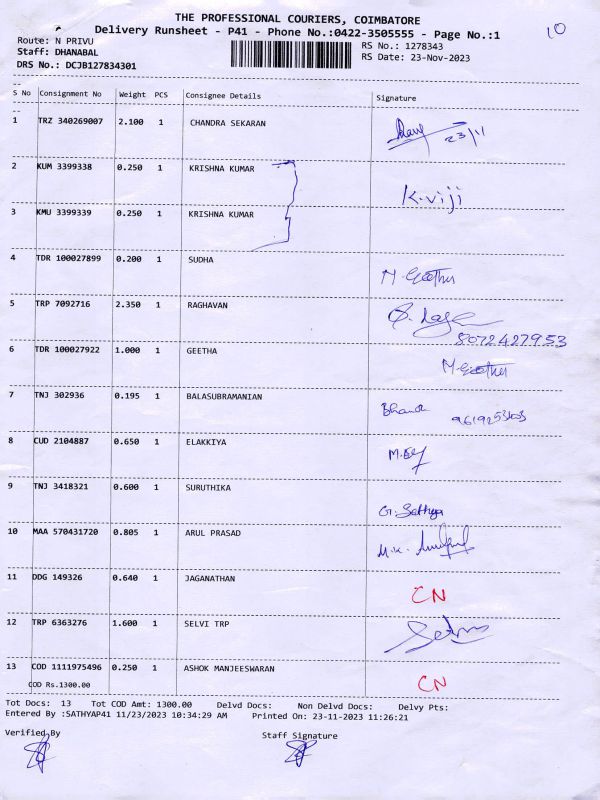 THE PROFESSIONAL COURIERS, COIMBATORE
Delivery Runsheet - P41 - Phone No.:0422-3505555 - Page No.:1
10
Route: N PRIVU
RS No.: 1278343
Staff: DHANABAL
RS Date: 23-Nov-2023
DRS No.: DCJB127834301
S No Consignment No Weight PCS Consignee Details Signature
1 TRZ 340269007 2.100 1 CHANDRA SEKARAN 23/11
2 KUM 3399338 0.250 1 KRISHNA KUMAR K.viji
3 KMU 3399339 0.250 1 KRISHNA KUMAR
4 TDR 100027899 0.200 1 SUDHA M.Geetha
5 TRP 7092716 2.350 1 RAGHAVAN
8072427953
6 TDR 100027922 1.000 1 GEETHA M.Geetha
7 TNJ 302936 0.195 1 BALASUBRAMANIAN
8 CUD 2104887 0.650 1 ELAKKIYA
9 TNJ 3418321 0.600 1 SURUTHIKA G.Sathya
10 MAA 570431720 0.805 1 ARUL PRASAD M.K.
11 DDG 149326 0.640 1 JAGANATHAN CN
12 TRP 6363276 1.600 1 SELVI TRP
13 COD 1111975496 0.250 1 ASHOK MANJEESWARAN CN
COD Rs.1300.00
Tot Docs: 13 Tot COD Amt: 1300.00 Delvd Docs: Non Delvd Docs: Delvy Pts:
Entered By :SATHYAP41 11/23/2023 10:34:29 AM Printed On: 23-11-2023 11:26:21
Verified By Staff Signature